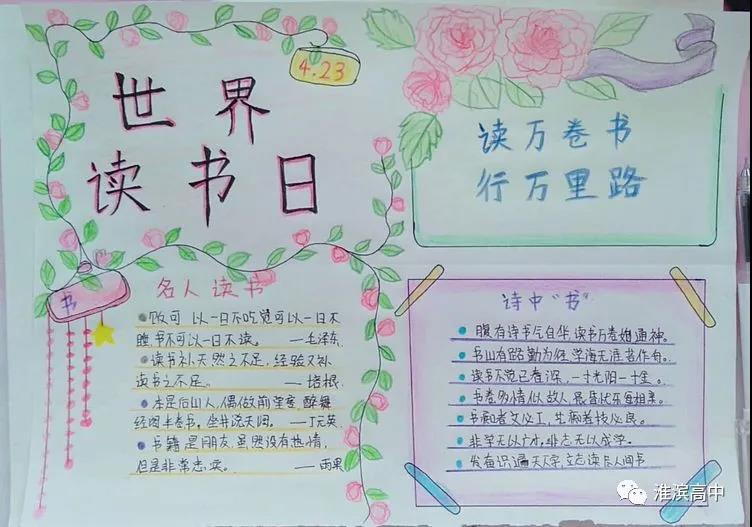 4.23
世界
读书日
读万卷书
行万里路
书
名人读书
饭可以一日不吃觉可以一日不
睡书不可以一日不读。——毛泽东
读书补天然之不足,经验又补
读书之不足。——培根
本是后山人,偶做前堂客,醉舞
经阁半卷书,坐井说天阔。——丁元英
书籍是朋友虽然没有热情,
但是非常忠实。——雨果
诗中"书"
腹有诗书气自华,读书万卷始通神。
书山有路勤为径,学海无涯苦作舟。
读书不觉已春深,一寸光阴一寸金。
书卷多情似故人,晨昏忧乐每相亲。
书痴者文必工,艺痴者技必良。
非学无以广才,非志无以成学。
发奋识遍天下字,立志读尽人间书
淮滨高中